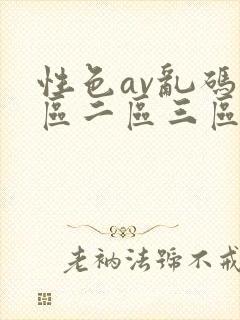 性色av亂碼
區二區三區
老衲法號不戒